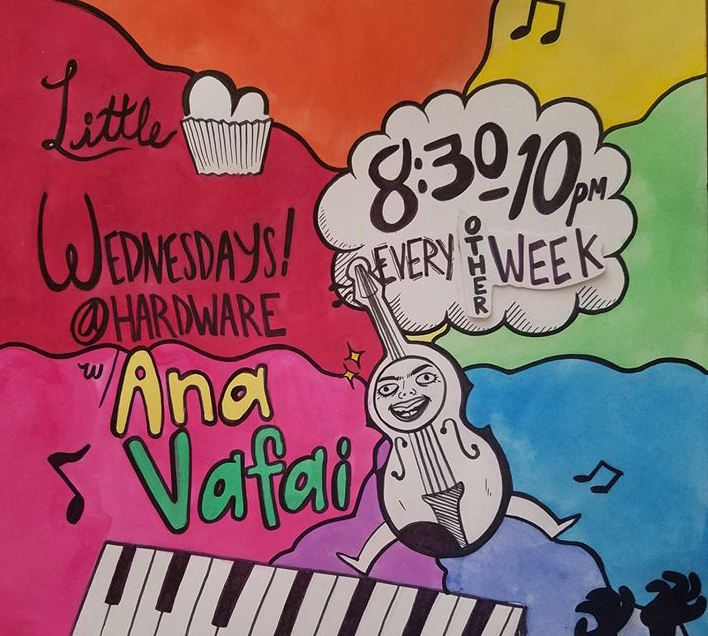 Little
WEDNESDAYS!
@HARDWARE
w/ Ana
Vafai
8:30-10PM
EVERY OTHER WEEK